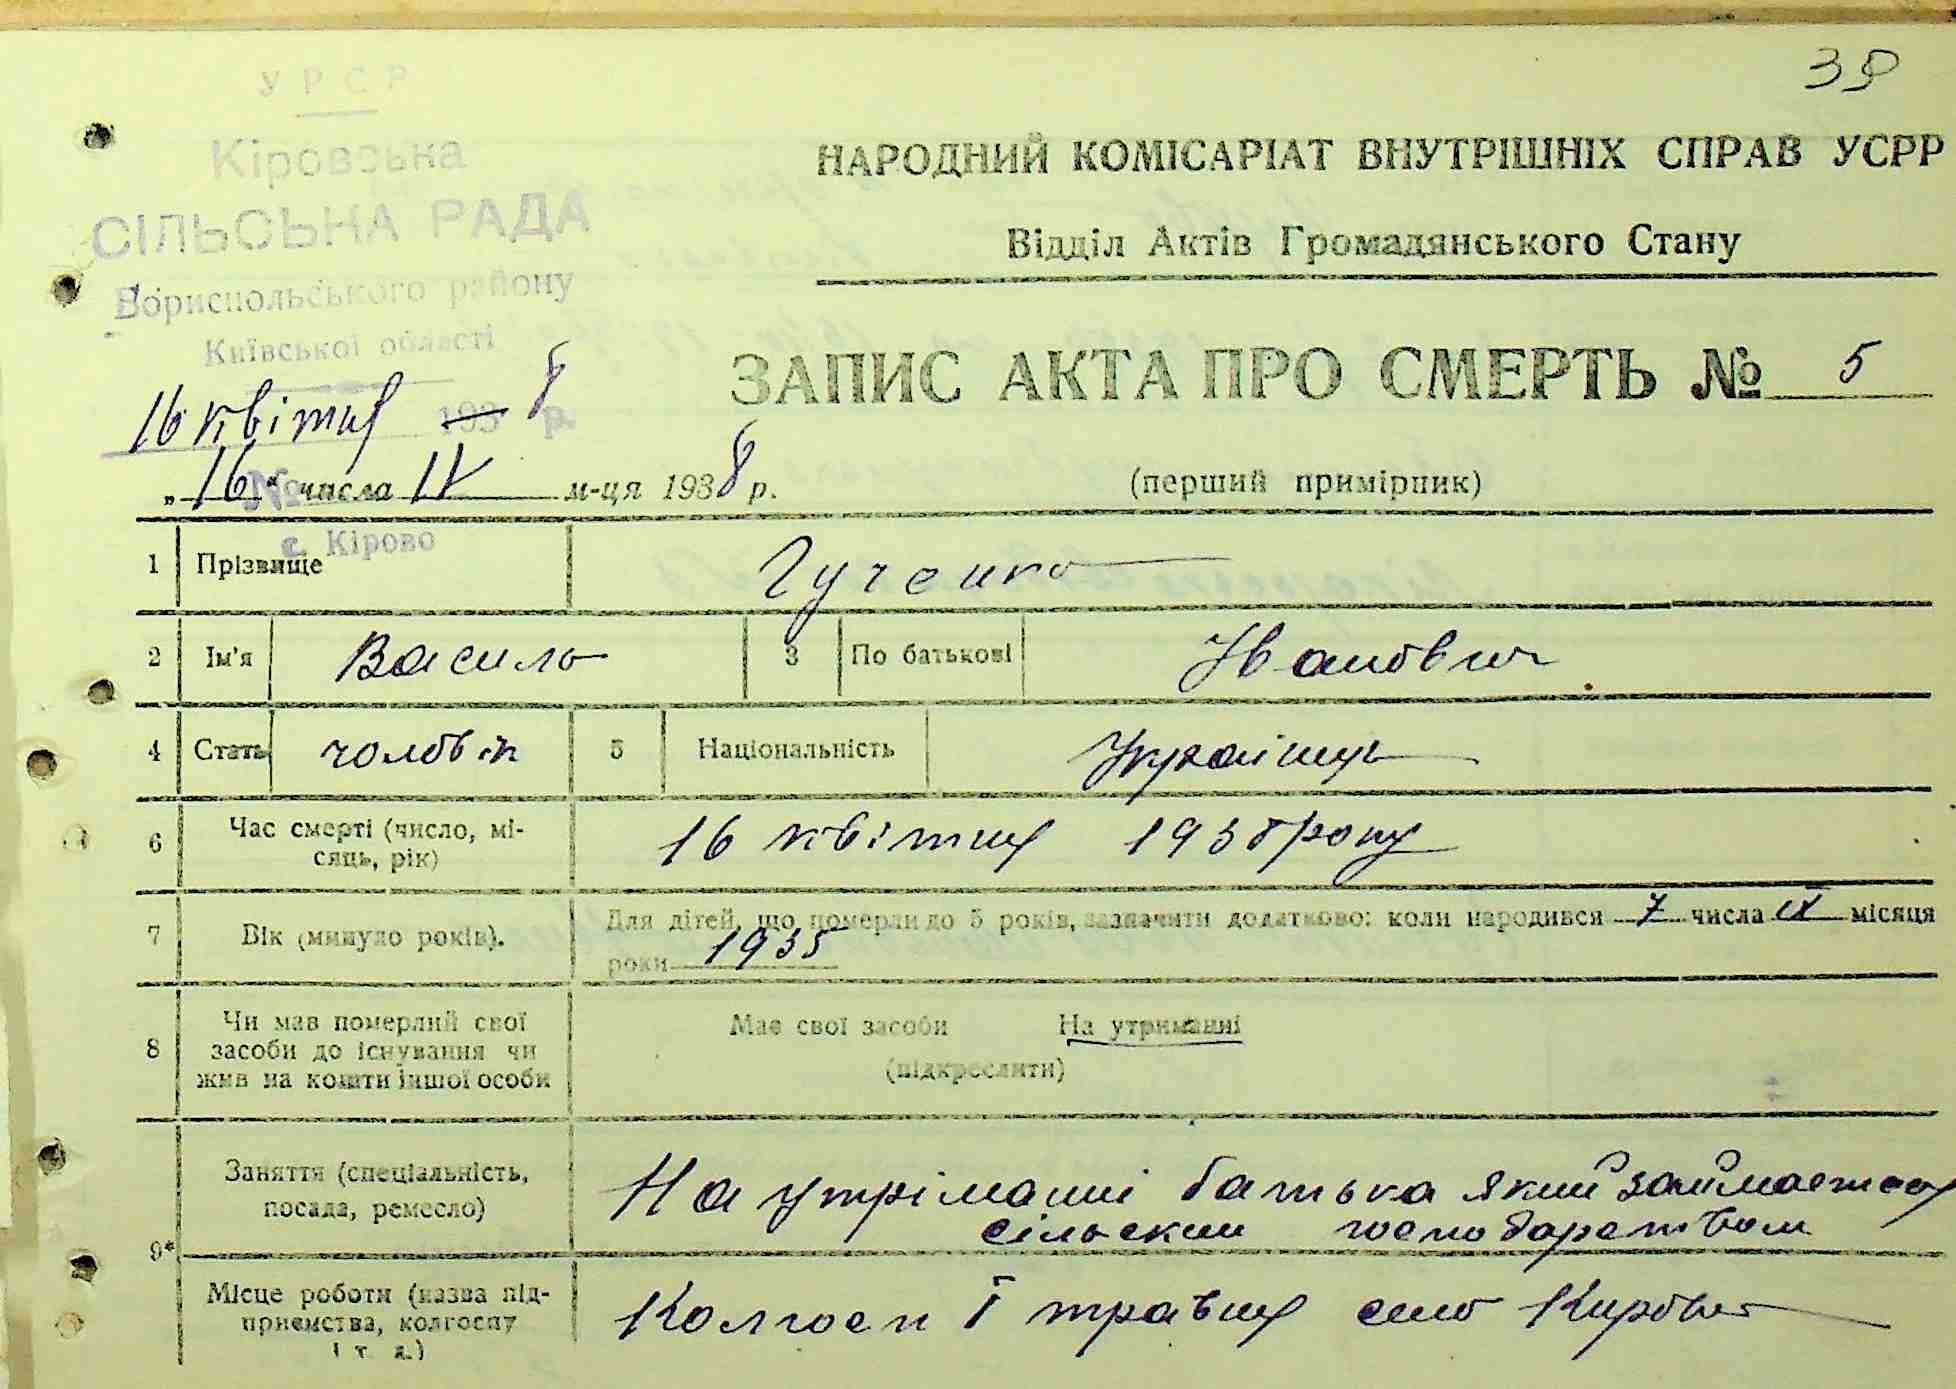 39
У Р С Р
Кіровська
СІЛЬСЬКА РАДА
Бориспольського району
Київської області
16 квітня 193 8 р.
№
с. Кірово
НАРОДНИЙ КОМІСАРІАТ ВНУТРІШНІХ СПРАВ УСРР
Відділ Актів Громадянського Стану
ЗАПИС АКТА ПРО СМЕРТЬ № 5
„16“ числа IV м-ця 1938 р.
(перший примірник)
1 Прізвище Гученко
2 Ім'я Василь 3 По батькові Іванович
4 Стать чоловік 5 Національність Українець
6 Час смерті (число, мі-
сяць, рік) 16 квітня 1938 року
7 Вік (минуло років). Для дітей, що померли до 5 років, зазначити додатково: коли народився 7 числа IX місяця
роки 1935
8 Чи мав померлий свої
засоби до існування чи
жив на кошти іншої особи
Має свої засоби На утриманні
(підкреслити)
9* Заняття (спеціальність,
посада, ремесло)
На утріманні батька який займается
сільским господарством
Місце роботи (назва під-
приємства, колгоспу
і т. д.)
Колгосп 1 травня село Кирово